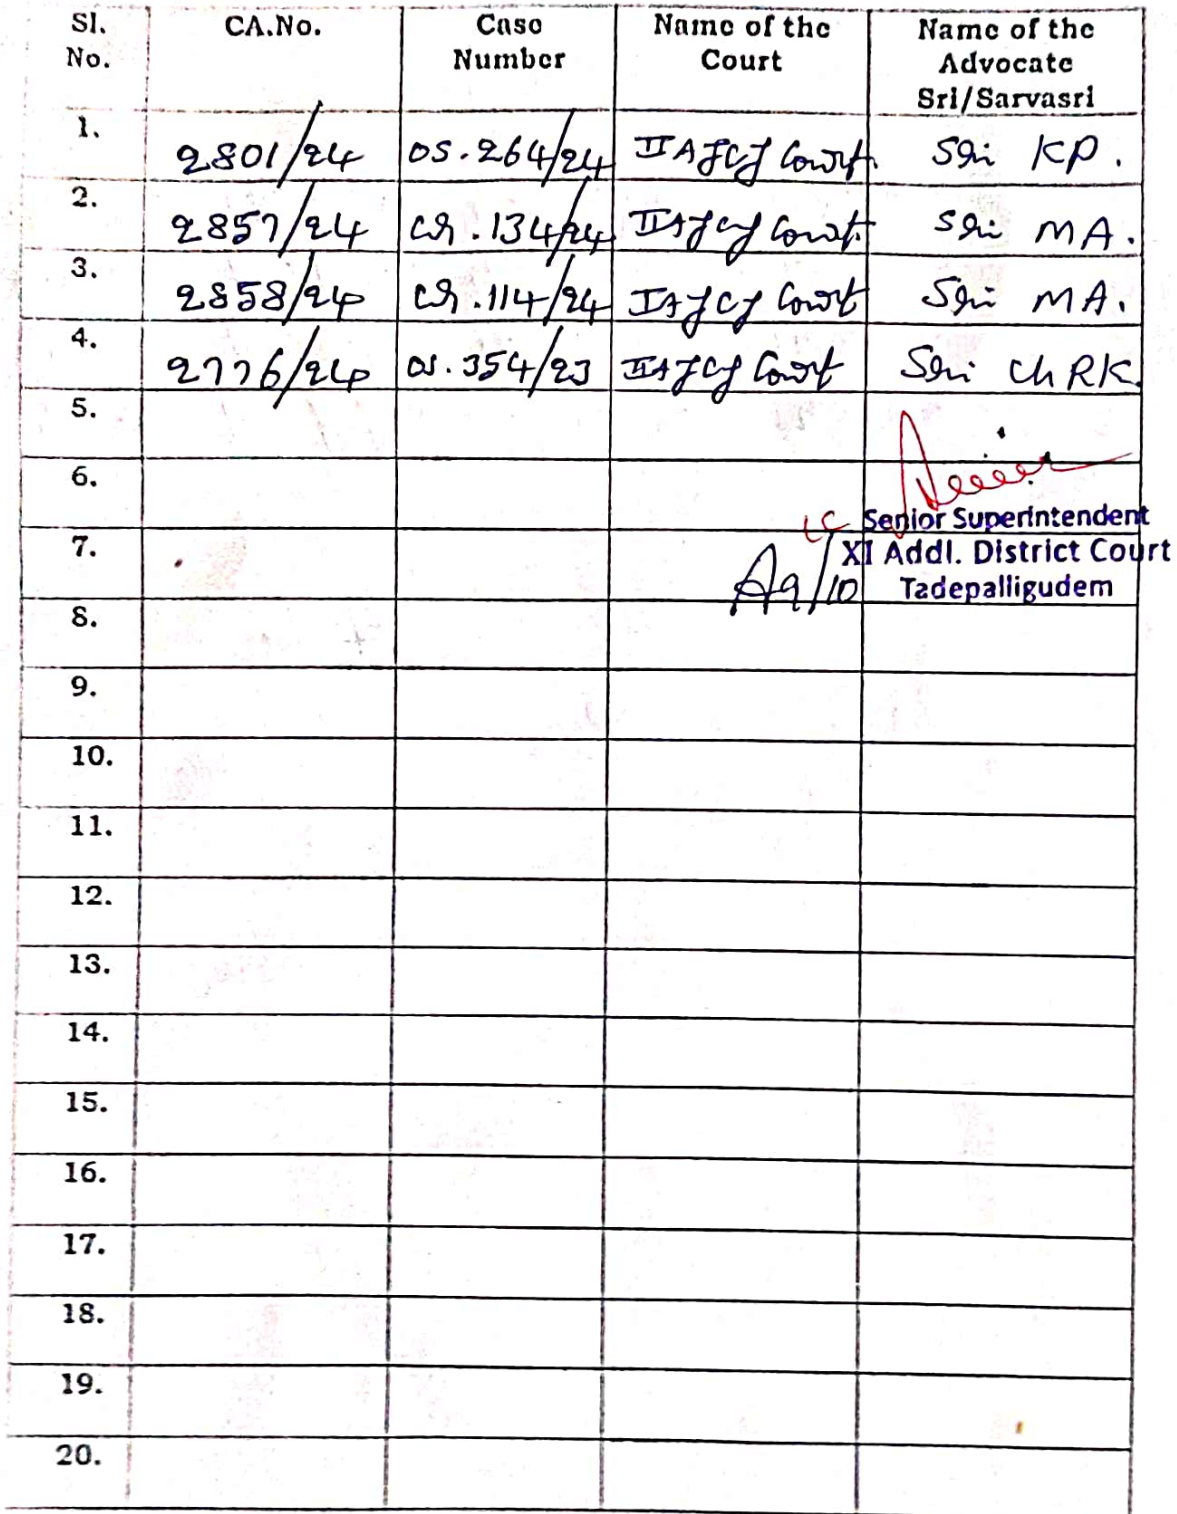 Sl. No. CA.No. Case Number Name of the Court Name of the Advocate Sri/Sarvasri
1. 2801/24 OS.264/24 II AJCJ Court. Sri KP.
2. 2857/24 Cr.134/24 II AJCJ Court. Sri MA.
3. 2858/24 Cr.114/24 IAJCJ Court Sri MA.
4. 2776/24 OS.354/23 IIAJCJ Court Sri Ch RK.
5.
6.
Senior Superintendent
7. XI Addl. District Court
9/10 Tadepalligudem
8.
9.
10.
11.
12.
13.
14.
15.
16.
17.
18.
19.
20.